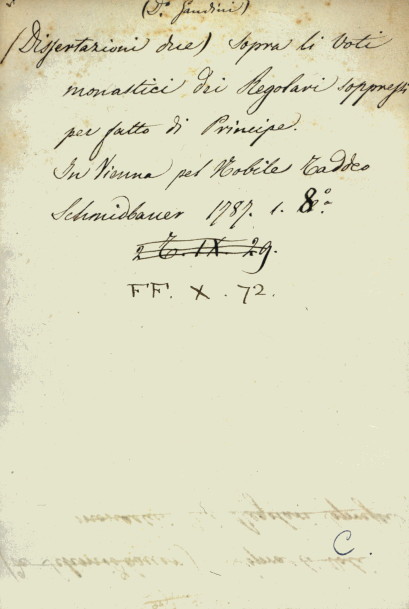 (Dr. Gandini)
(Dissertazioni due) sopra li Voti
monastici dei Regolari soppressi
per fatto di Principe.
In Vienna pel Nobile Taddeo
Schmidbauer 1787. 1. 8o.
2 T. IX. 29.
FF. X. 72.
C.